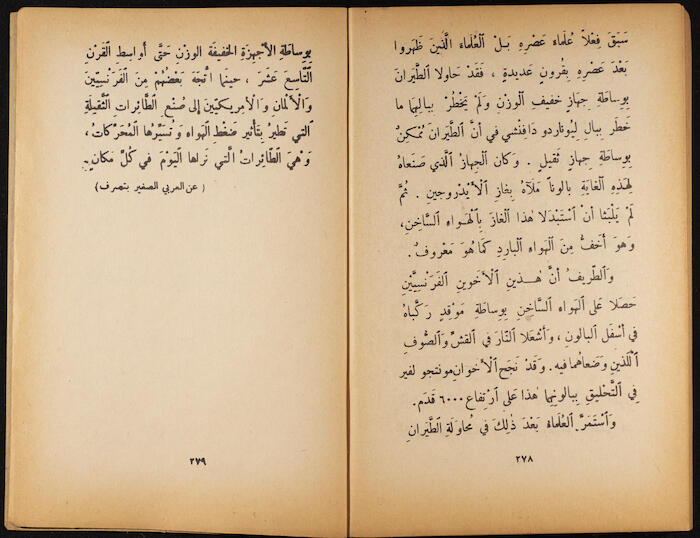 سَبَقَ فِعْلاً عُلماءَ عَصْرِهِ بَلْ الْعُلماءَ الَّذينَ ظَهَروا
بَعْدَ عَصْرِهِ بِقُرونٍ عَديدةٍ ، فَقَدْ حَاولا الطَّيَرانَ
بِوِساطَةِ جِهازٍ خَفيفِ الْوَزْنِ وَلَمْ يَخْطُرْ بِبالِهِما ما
خَطَر بِبالِ لِيُوناردو دَافِنْشي في أنَّ الطَّيَرانَ مُمْكِنٌ
بِوِساطَةِ جِهازٍ ثَقيلٍ . وَكان الجِهازُ الَّذي صَنَعاهُ
لِهذِهِ الْغايَةِ بالوناً مَلآهُ بِغازِ الْأَيْدروجينِ . ثُمَّ
لَمْ يَلْبَثا أنْ اسْتَبْدَلا هٰذا الْغازَ بِالْهَواءِ السَّاخِنِ،
وَهوَ أَخَفُّ مِنَ الْهَواءِ الْبارِدِ كَمَا هُوَ مَعْروفٌ.
وَالطَّريفُ أنَّ هٰذينِ الْأَخَوينِ الْفَرَنْسِيَّيْنِ
حَصَلا عَلى الْهَواءِ السَّاخِنِ بِوِساطَةِ مَوْقِدٍ رَكَّباهُ
في أسْفَلِ الْبالونِ ، وَأشْعَلا النَّارَ في القَشِّ وَالصُّوفِ
اللَّذينِ وَضَعاهُما فيه. وَقَدْ نَجَحَ الْأخَوانِ مونتجو لفير
في التَّحْليقِ بِبالونِهِما هٰذا عَلى ارْتِفاعِ ٦٠٠٠ قَدَم.
وَاسْتَمَرَّ الْعُلَماءُ بَعْدَ ذٰلِكَ في مُحاوَلَةِ الطَّيَرانِ
٢٧٨
بِوِساطَةِ الأجْهِزَةِ الخَفيفَةِ الْوَزْنِ حَتَّى أواسِطِ الْقَرْنِ
التَّاسِعَ عَشَرَ ، حينَما اتَّجَهَ بَعْضُهُمْ مِنَ الْفَرَنْسِيِّينَ
وَالْألْمانِ وَالْأمريكِيِّينَ إلى صُنْعِ الطَّائِراتِ الثَّقيلَةِ
التي تَطيرُ بِتَأثيرِ ضَغْطِ الهَواءِ وَتُسَيِّرُها الْمُحَرِّكاتُ ،
وَهيَ الطّائِراتُ الَّتي نَراها الْيَوْمَ في كُلِّ مَكانٍ .
( عن العربي الصغير بتصرف )
٢٧٩